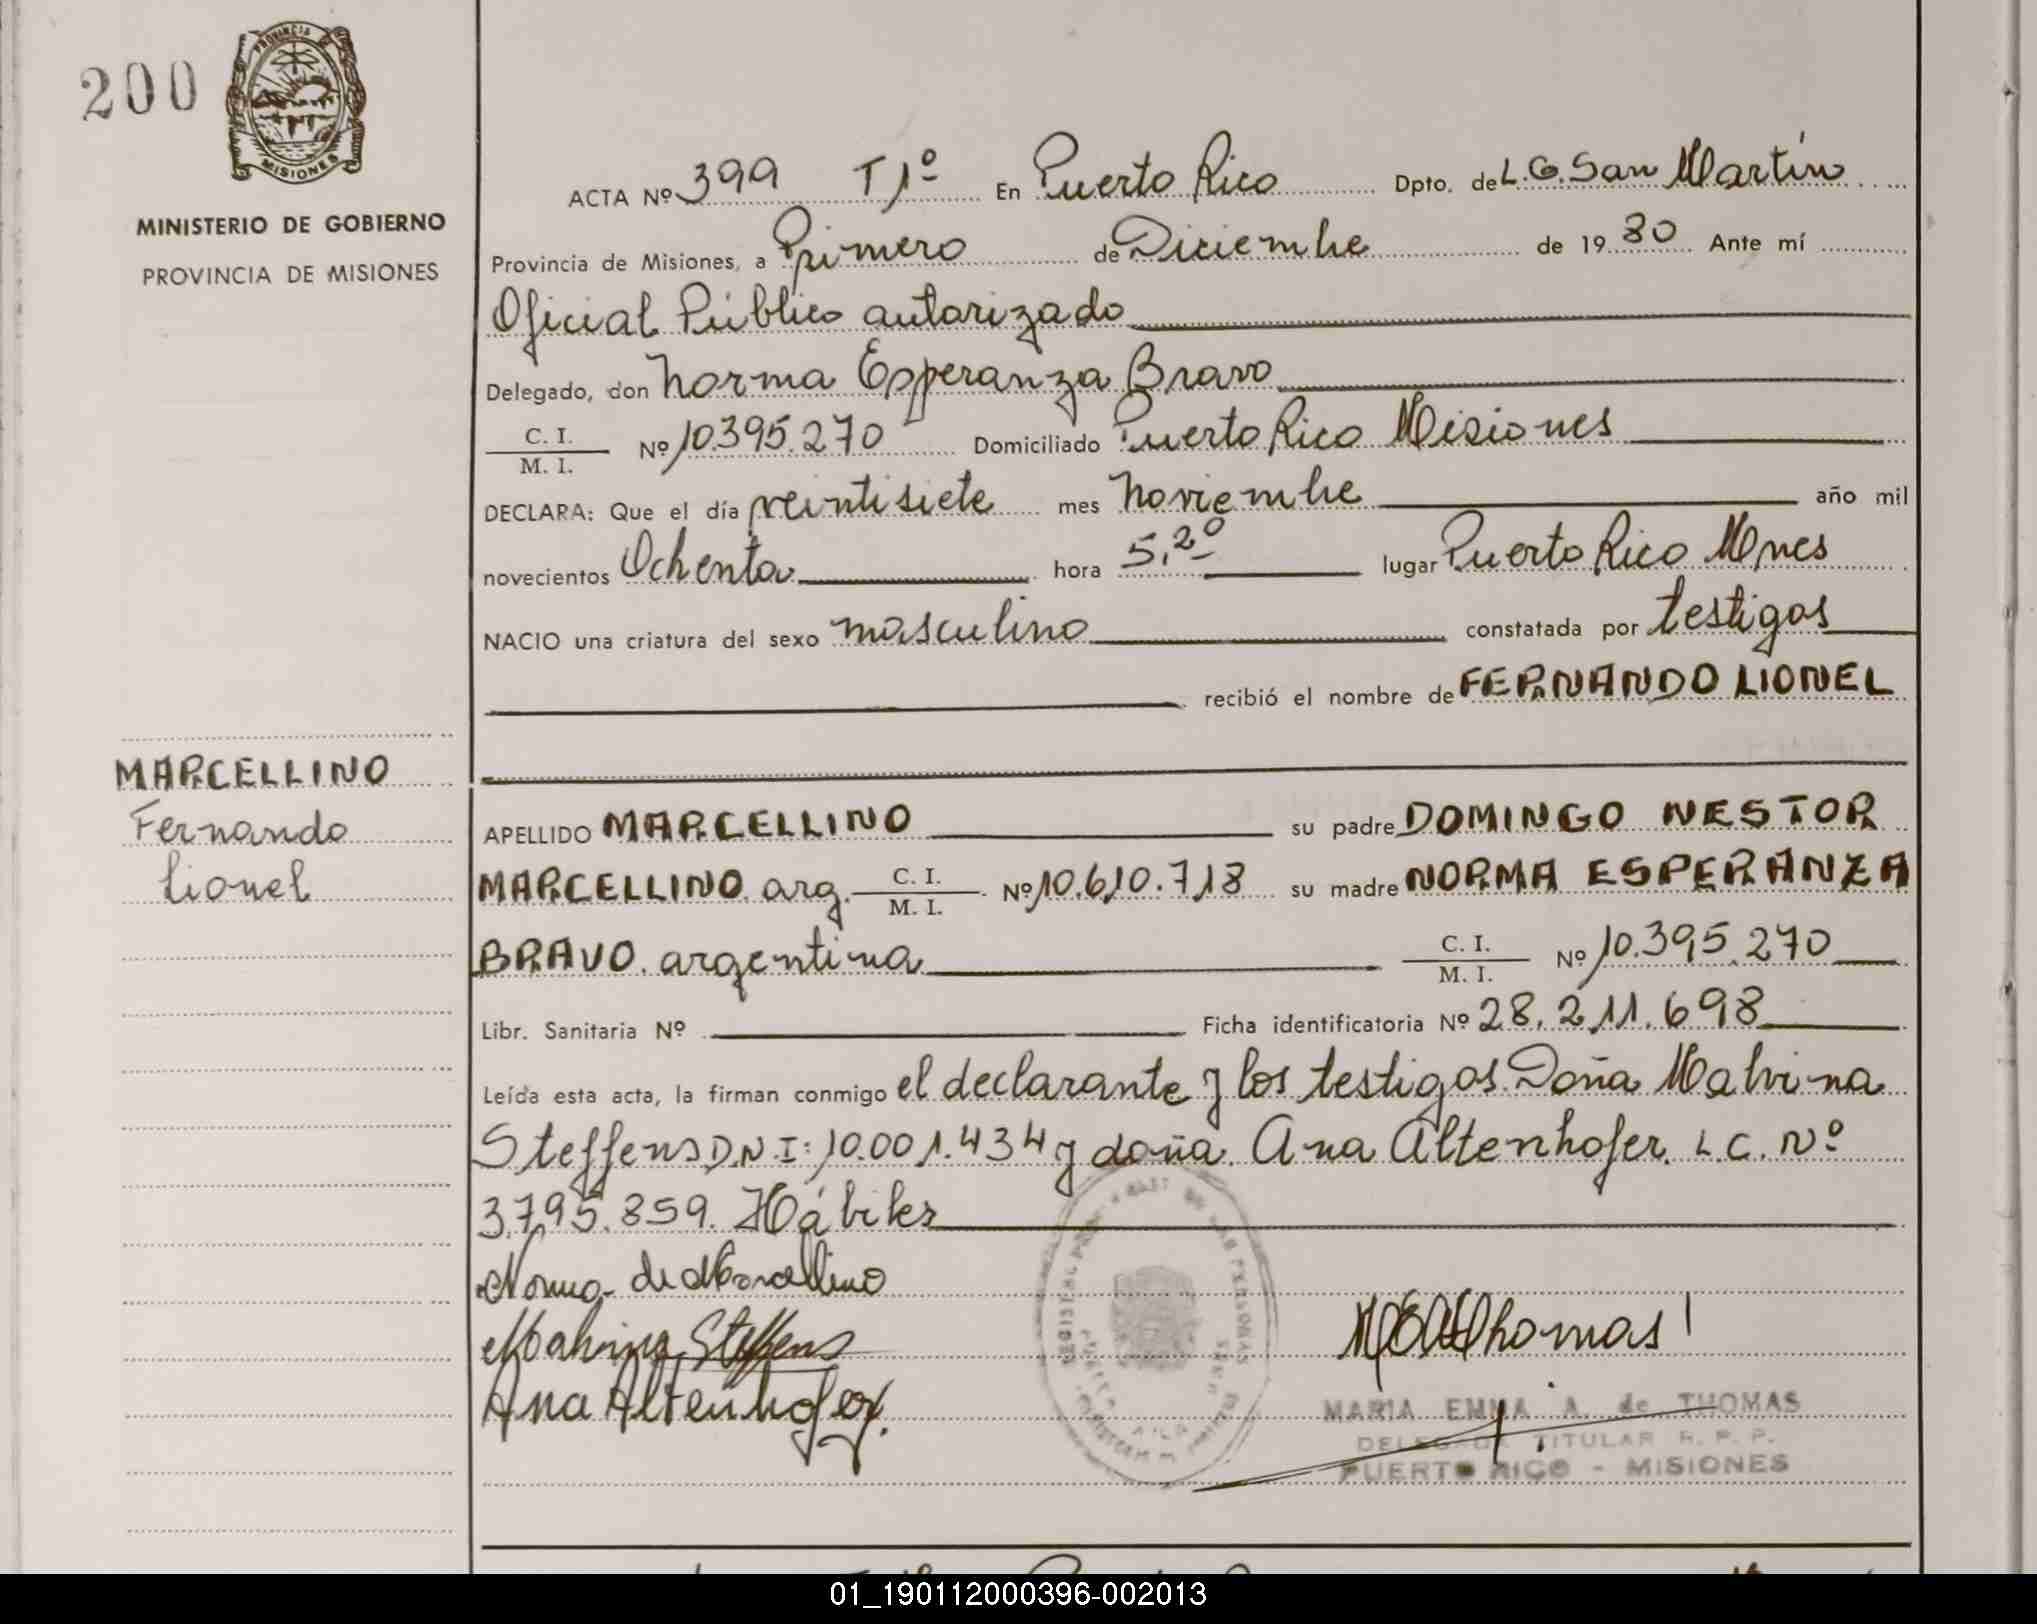 200
PROVINCIA DE
MISIONES
MINISTERIO DE GOBIERNO
PROVINCIA DE MISIONES
ACTA Nº 399 T1º En Puerto Rico Dpto. de L.G. San Martín
Provincia de Misiones, a Primero de Diciembre de 19 80 Ante mí
Oficial Público autorizado
Delegado, don Norma Esperanza Bravo
C. I.
M. I. Nº 10.395.270 Domiciliado Puerto Rico Misiones
DECLARA: Que el día veintisiete mes Noviembre año mil
novecientos Ochenta hora 5,20 lugar Puerto Rico Mnes
NACIO una criatura del sexo masculino constatada por testigos
recibió el nombre de FERNANDO LIONEL
MARCELLINO
Fernando
Lionel
APELLIDO MARCELLINO su padre DOMINGO NESTOR
MARCELLINO arg. C. I.
M. I. Nº 10.610.718 su madre NORMA ESPERANZA
BRAVO. argentina C. I.
M. I. Nº 10.395.270
Libr. Sanitaria Nº Ficha identificatoria Nº 28.211.698
Leída esta acta, la firman conmigo el declarante y los testigos Doña Malvina
Steffens D.N.I: 10.001.434 y doña Ana Altenhofer. L.C. Nº
3.795.859. Hábiles
Norma de Marcellino
Malvina Steffens
Ana Altenhofer.
MEAThomas
MARIA EMMA A. de THOMAS
DELEGADA TITULAR R. P. P.
PUERTO RICO - MISIONES
01_190112000396-002013